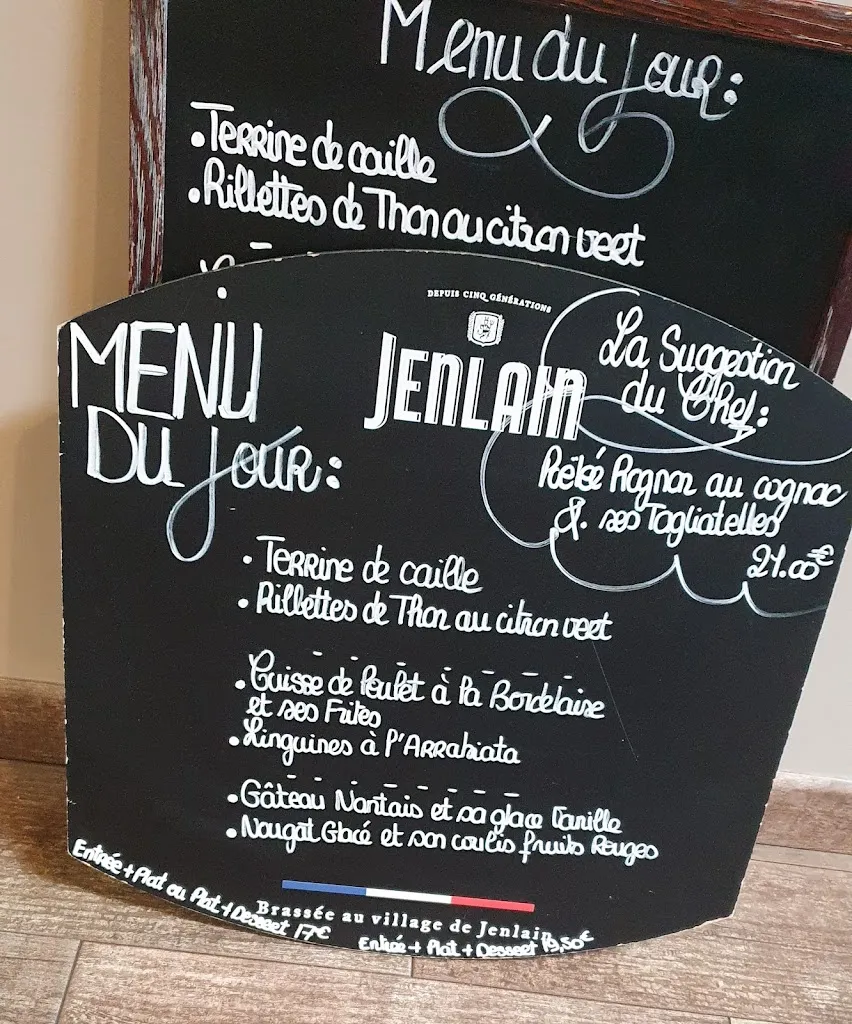 Menu du Jour:
• Terrine de caille
• Rillettes de Thon au citron vert
DEPUIS CINQ GÉNÉRATIONS
JENLAIN
MENU
DU Jour:
La Suggestion
du Chef:
Rognon au cognac
&. ses Tagliatelles
21.00€
• Terrine de caille
• Rillettes de Thon au citron vert
- - - - - - -
• Cuisse de Poulet à la Bordelaise
et ses Frites
• Linguines à l'Arrabiata
- - - - - - -
• Gâteau Nantais et sa glace Vanille
• Nougat Glacé et son coulis fruits Rouges
Brassée au village de Jenlain
Entrée + Plat ou Plat + Dessert 17€
Entrée + Plat + Dessert 19,50€